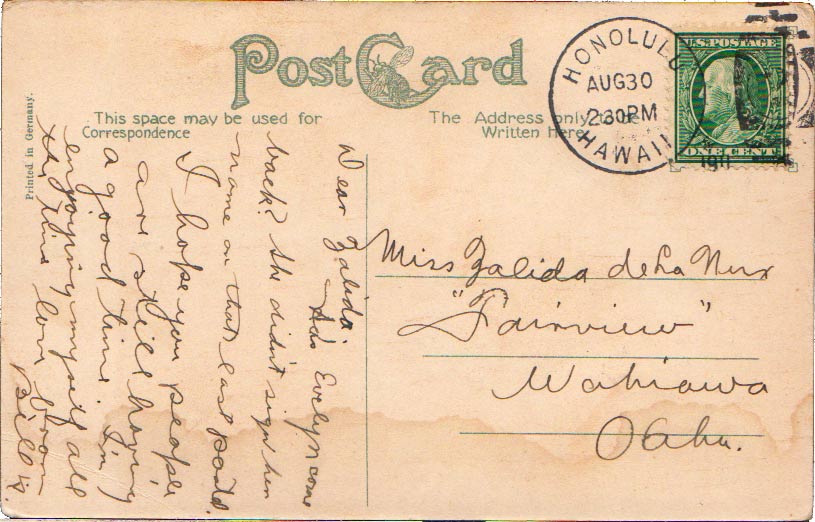 Post Card
This space may be used for
Correspondence
The Address only to be
Written here
Printed in Germany.
HONOLULU
AUG 30
2 30 PM
1911
HAWAII
U.S. POSTAGE
ONE CENT
Miss Zalida de La Nux
"Fairview"
Wahiawa
Oahu.
Dear Zalida:
Has Evelyn come
back? She didn't sign her
name on that last postal.
I hope you people
are still having
a good time. I'm
enjoying myself all
the time love from
Bill